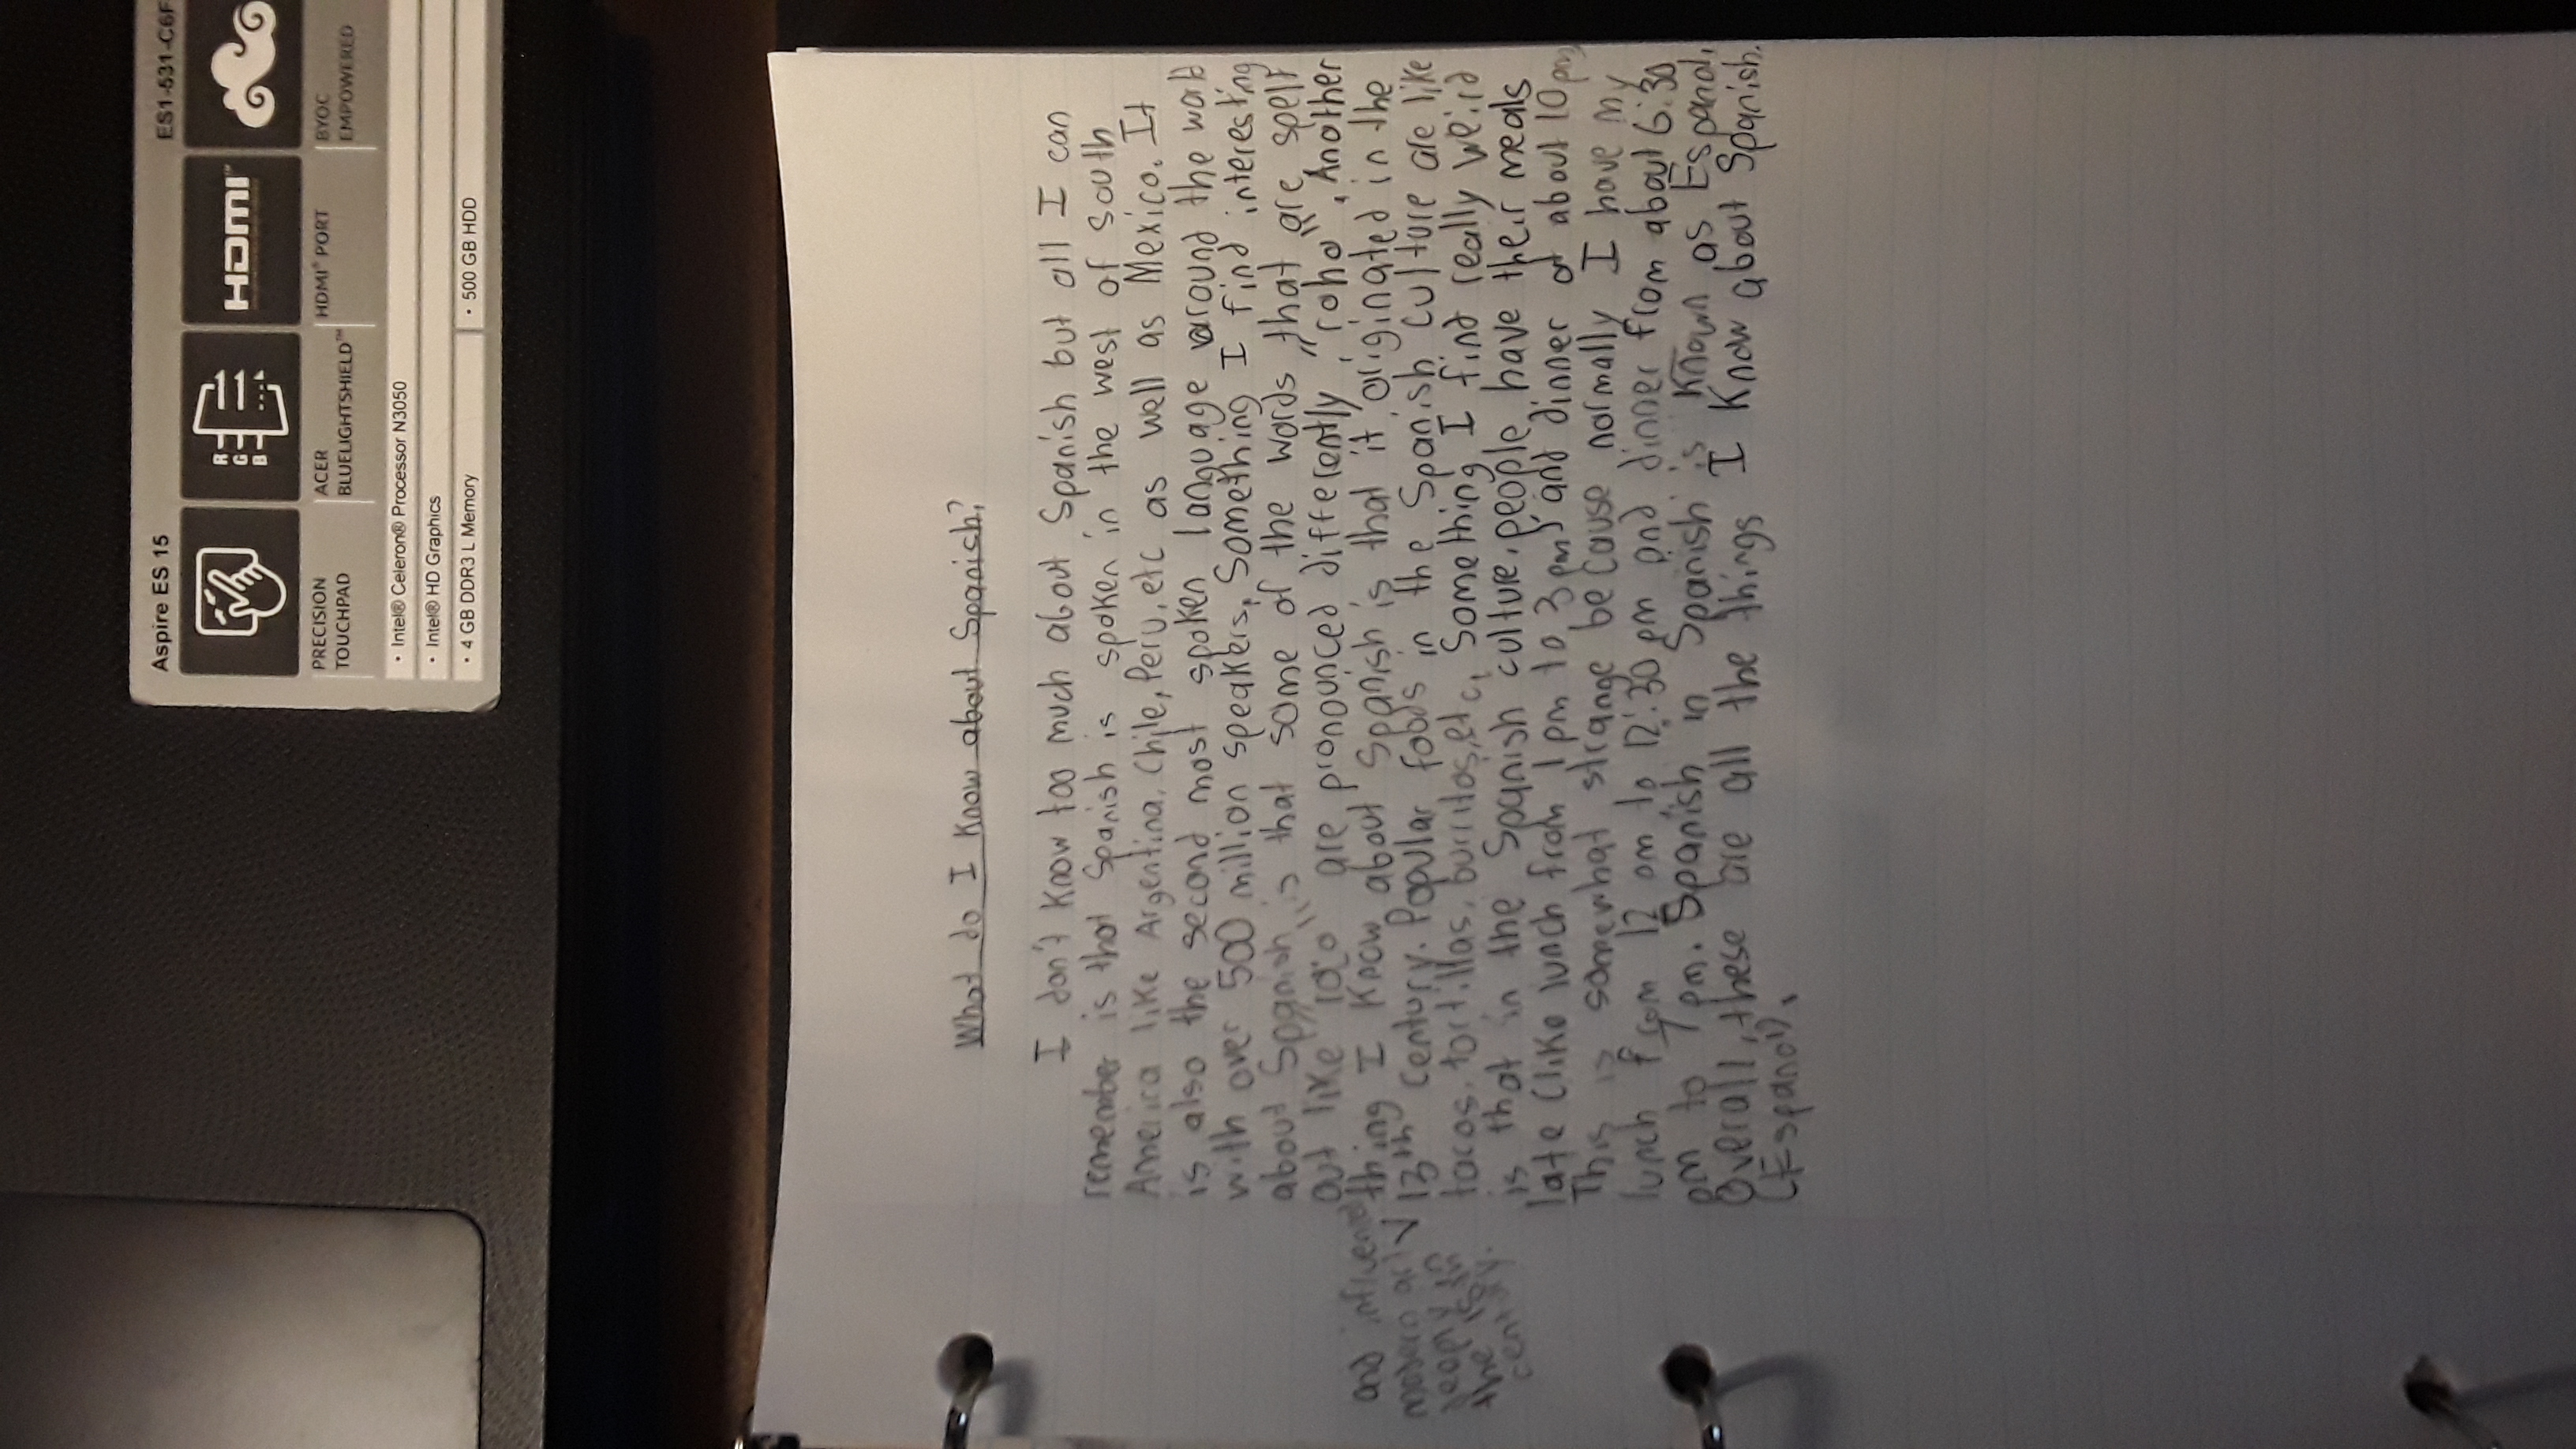 Aspire ES 15
ES1-531-C6F
R
G
B
HDMI™
PRECISION
TOUCHPAD
ACER
BLUELIGHTSHIELD™
HDMI® PORT
BYOC
EMPOWERED
• Intel® Celeron® Processor N3050
• Intel® HD Graphics
• 4 GB DDR3 L Memory
• 500 GB HDD
What do I know about Spanish?
I don't know too much about Spanish but all I can
remember is that Spanish is spoken in the west of South
America like Argentina, Chile, Peru, etc as well as Mexico. It
is also the second most spoken language around the world
with over 500 million speakers. Something I find interesting
about Spanish is that some of the words that are spelt
out like "rojo" are pronounced differently, "roho". Another
thing I know about Spanish is that it originated in the
13th century. Popular foods in the Spanish culture are like
and influenced
modern art
deeply in
the 15th
century.
tacos, tortillas, burritos, etc. Something I find really weird
is that in the Spanish culture, people have their meals
late (like lunch from 1 pm to 3 pm) and dinner at about 10 pm
This is somewhat strange because normally I have my
lunch from 12 am to 12:30 pm and dinner from about 6:30
pm to 7 pm. Spanish in Spanish is known as Espanol.
Overall, these are all the things I know about Spanish.
(Espanol).